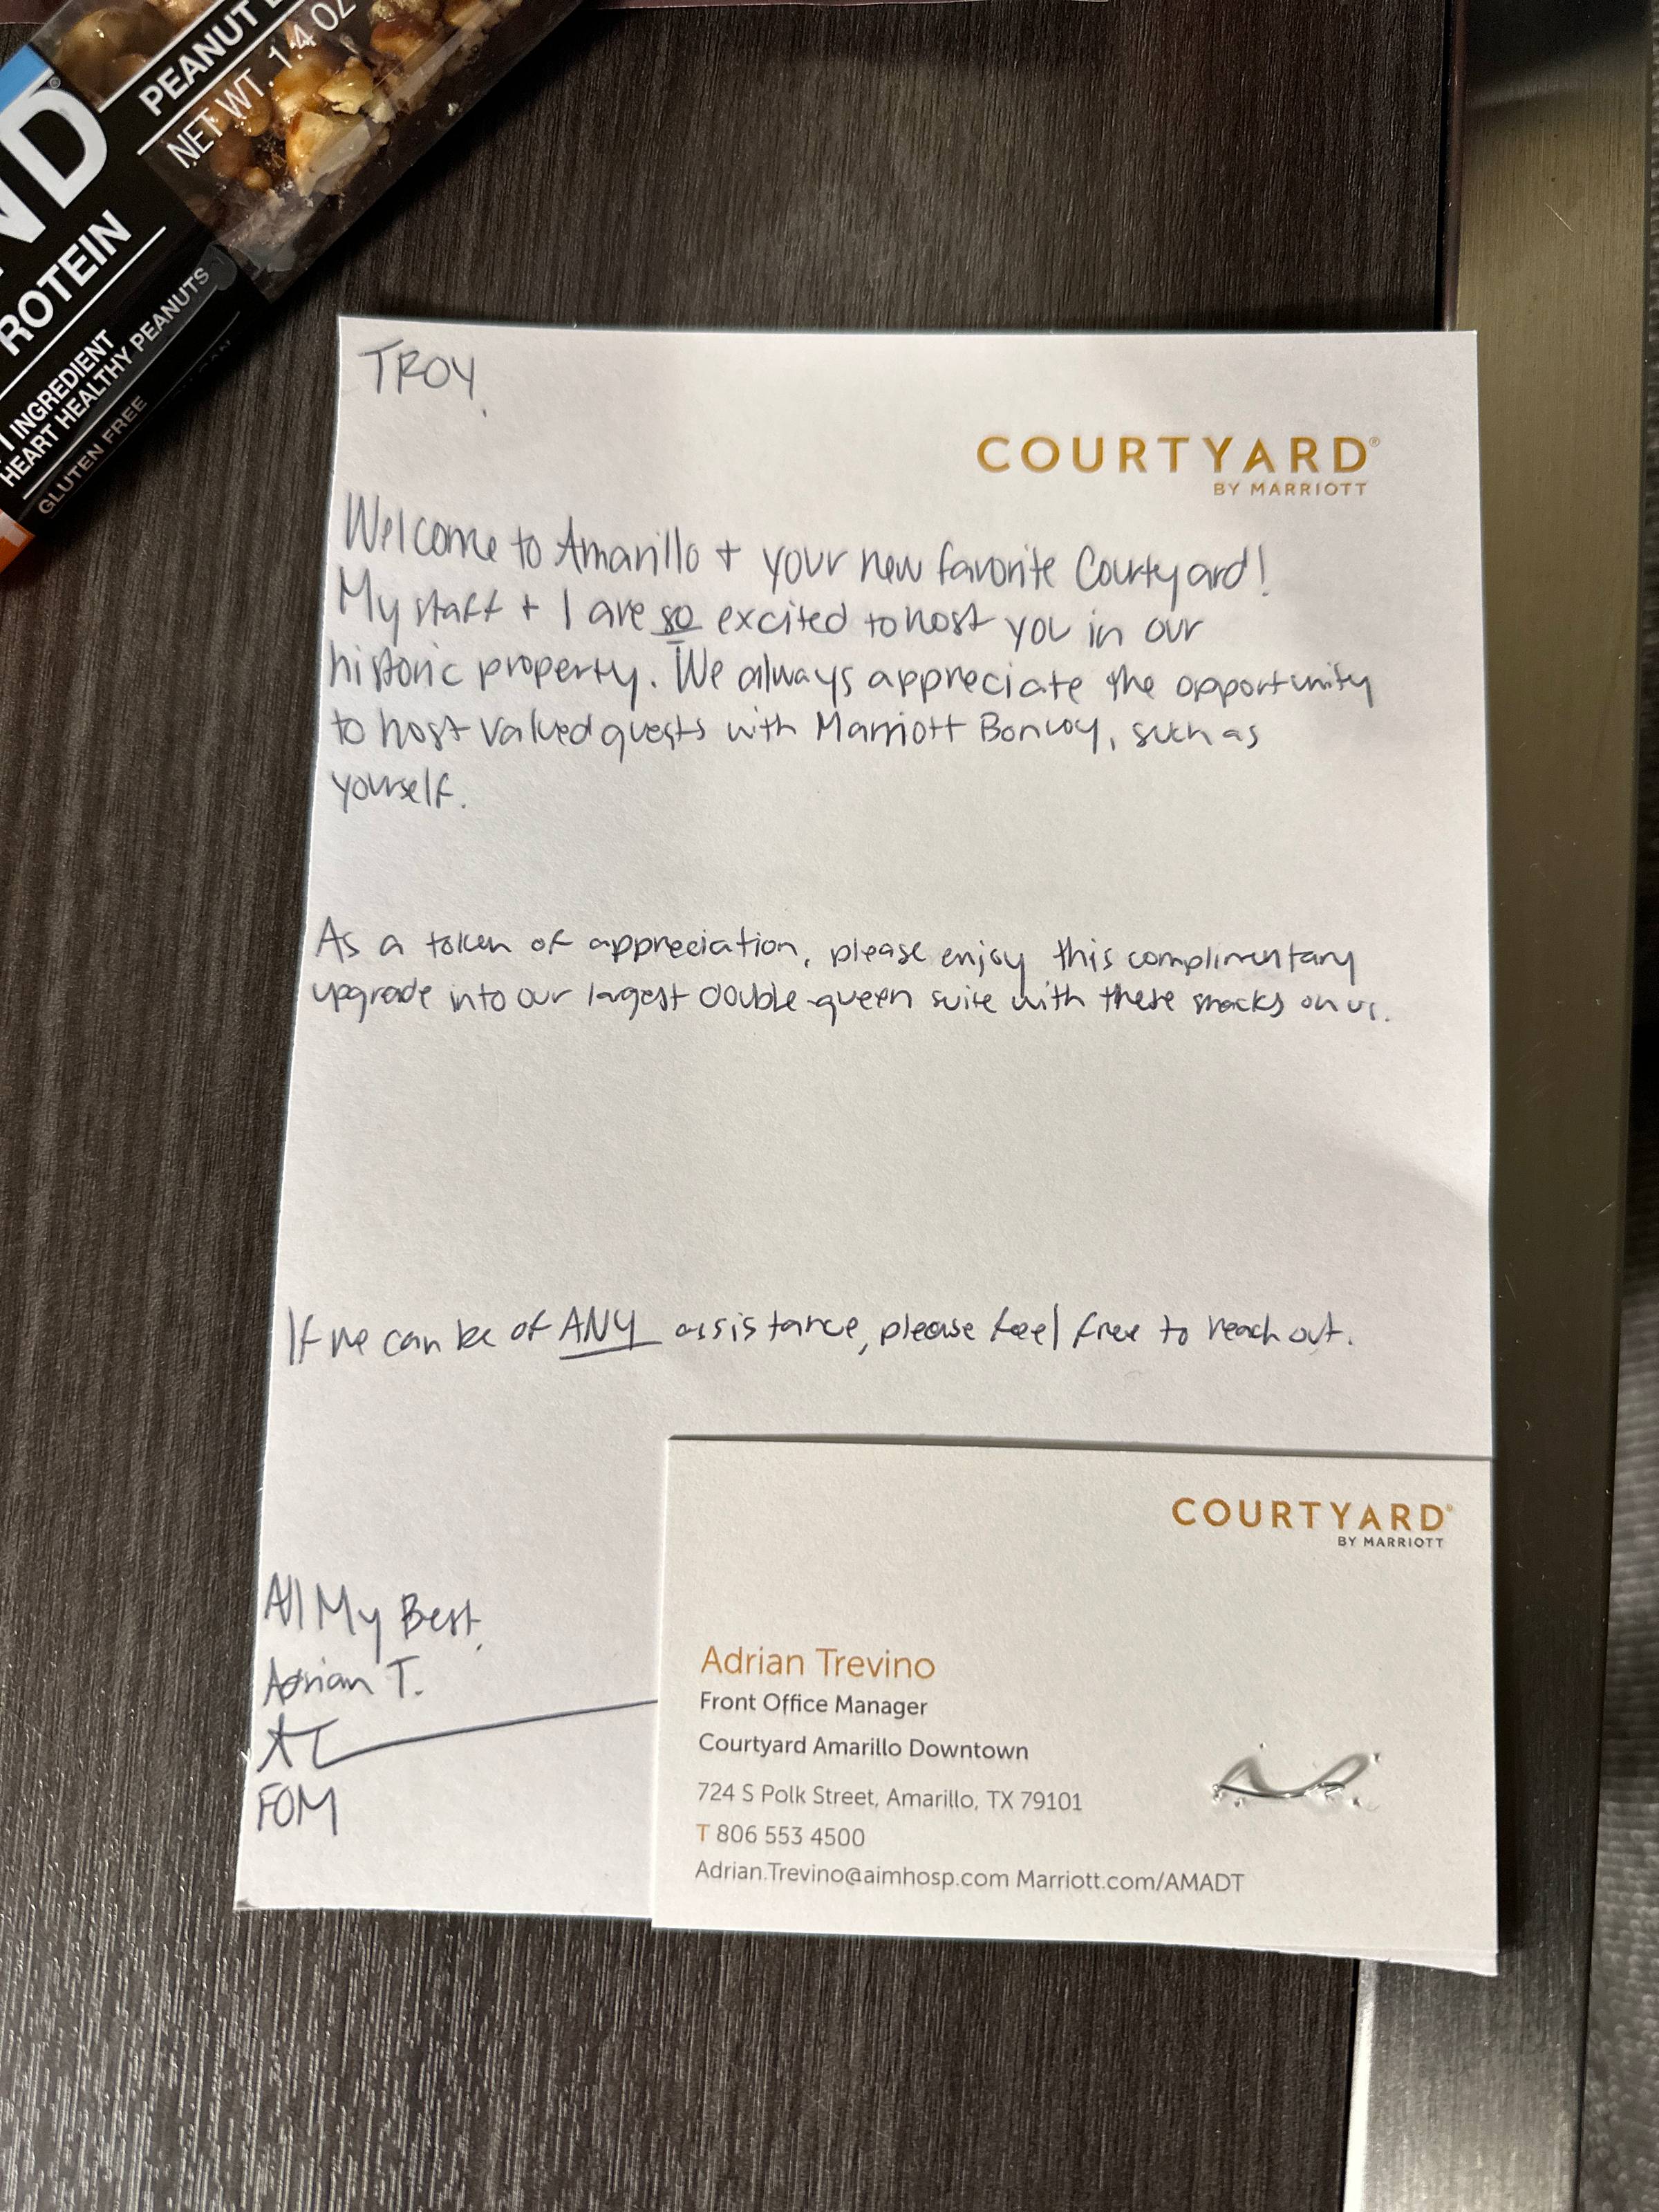 ND
PEANUT
NET WT. 1.4 OZ
ROTEIN
INGREDIENT
HEART HEALTHY PEANUTS
GLUTEN FREE
TROY,
COURTYARD®
BY MARRIOTT
Welcome to Amarillo + your new favorite Courtyard!
My staff + I are so excited to host you in our
historic property. We always appreciate the opportunity
to host valued guests with Marriott Bonvoy, such as
yourself.
As a token of appreciation, please enjoy this complimentary
upgrade into our largest double queen suite with these snacks on us.
If we can be of ANY assistance, please feel free to reach out.
All My Best,
Adrian T.
FOM
COURTYARD®
BY MARRIOTT
Adrian Trevino
Front Office Manager
Courtyard Amarillo Downtown
724 S Polk Street, Amarillo, TX 79101
T 806 553 4500
Adrian.Trevino@aimhosp.com Marriott.com/AMADT